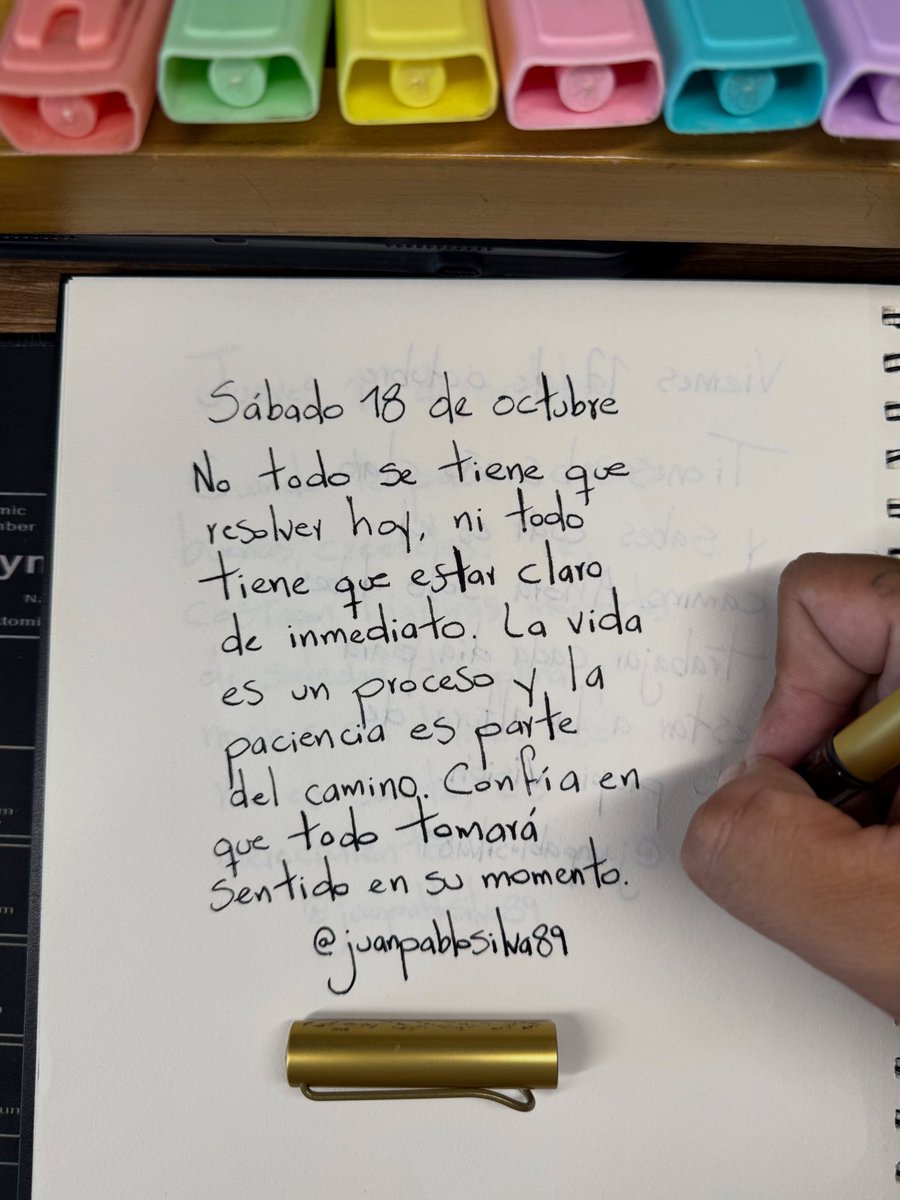 Sábado 18 de octubre
No todo se tiene que
resolver hoy, ni todo
tiene que estar claro
de inmediato. La vida
es un proceso y la
paciencia es parte
del camino. Confía en
que todo tomará
sentido en su momento.
@juanpablosilva89